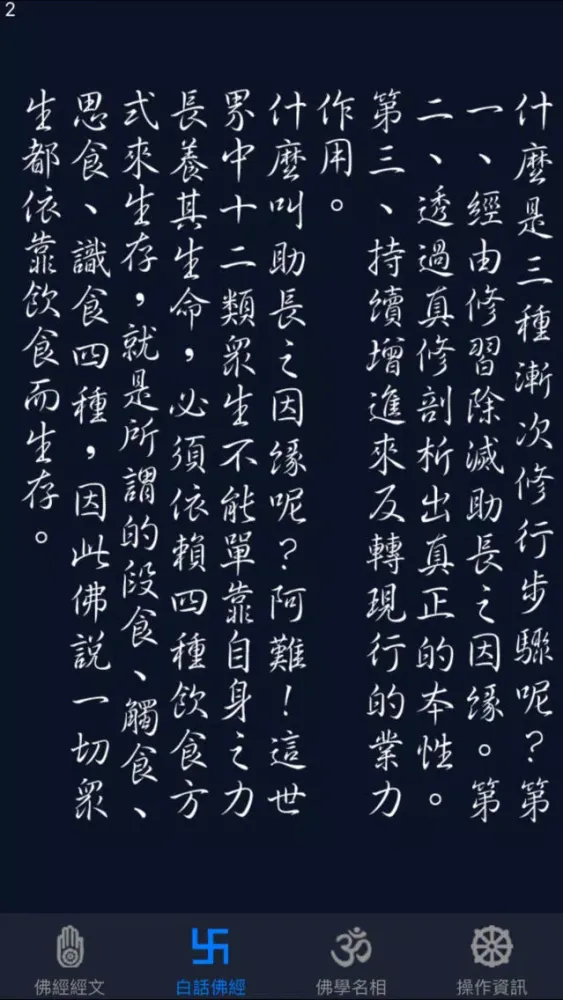 2
什麼是三種漸次修行步驟呢？第
一、經由修習除滅助長之因緣。第
二、透過真修剖析出真正的本性。
第三、持續增進來反轉現行的業力
作用。
什麼叫助長之因緣呢？阿難！這世
界中十二類眾生不能單靠自身之力
長養其生命，必須依賴四種飲食方
式來生存，就是所謂的段食、觸食、
思食、識食四種，因此佛說一切眾
生都依靠飲食而生存。
佛經經文
白話佛經
佛學名相
操作資訊